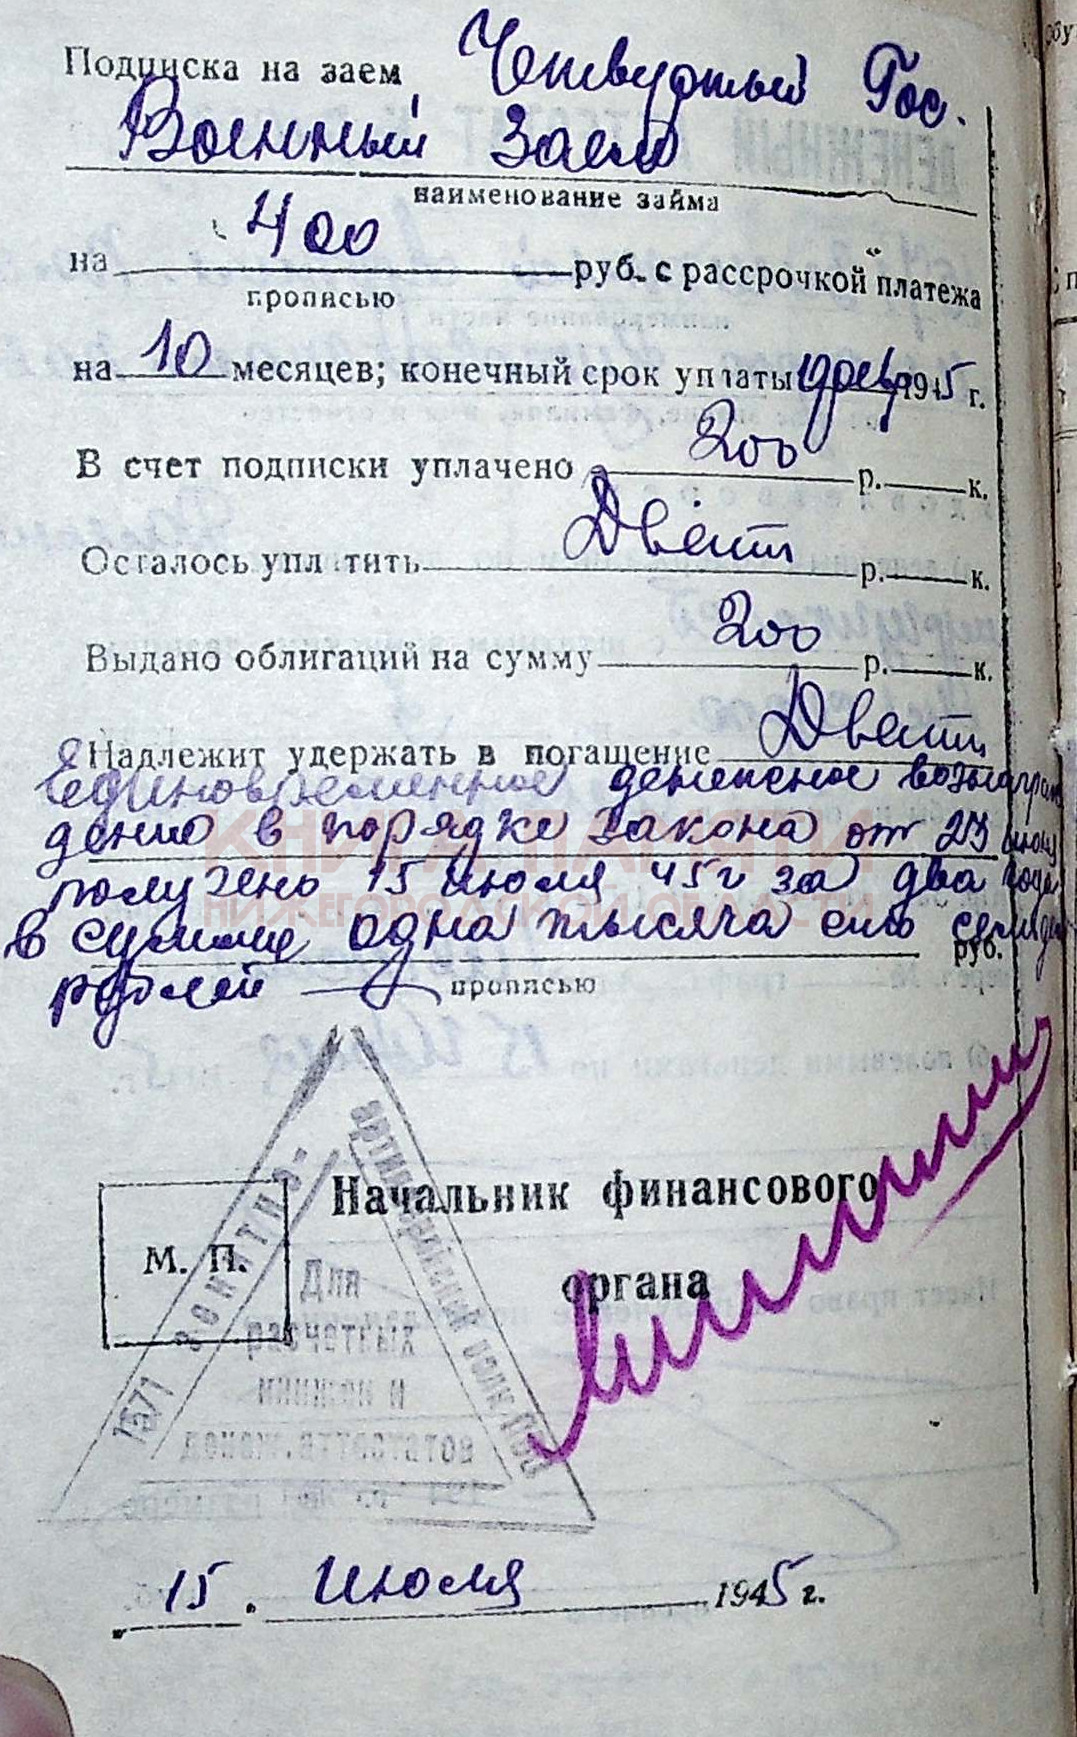 Подписка на заем Четвертый Гос.
Военный Заем
наименование займа
на 400 руб. с рассрочкой платежа
прописью
на 10 месяцев; конечный срок уплаты 1945 г.
В счет подписки уплачено 200 р. к.
Осталось уплатить Двести р. к.
Выдано облигаций на сумму 200 р. к.
Надлежит удержать в погашение Двести
Единовременное денежное вознаграж
дение в порядке закона от 23 июня
получено 15 июля 45 г за два года
в сумме одна тысяча сто руб.
рублей прописью
КНИГА ПАМЯТИ
НИЖЕГОРОДСКОЙ ОБЛАСТИ
Начальник финансового
органа
М. П.
1571 зенитно-
артиллерийский полк
Для
расчетных
и книжки
15. Июля 1945 г.